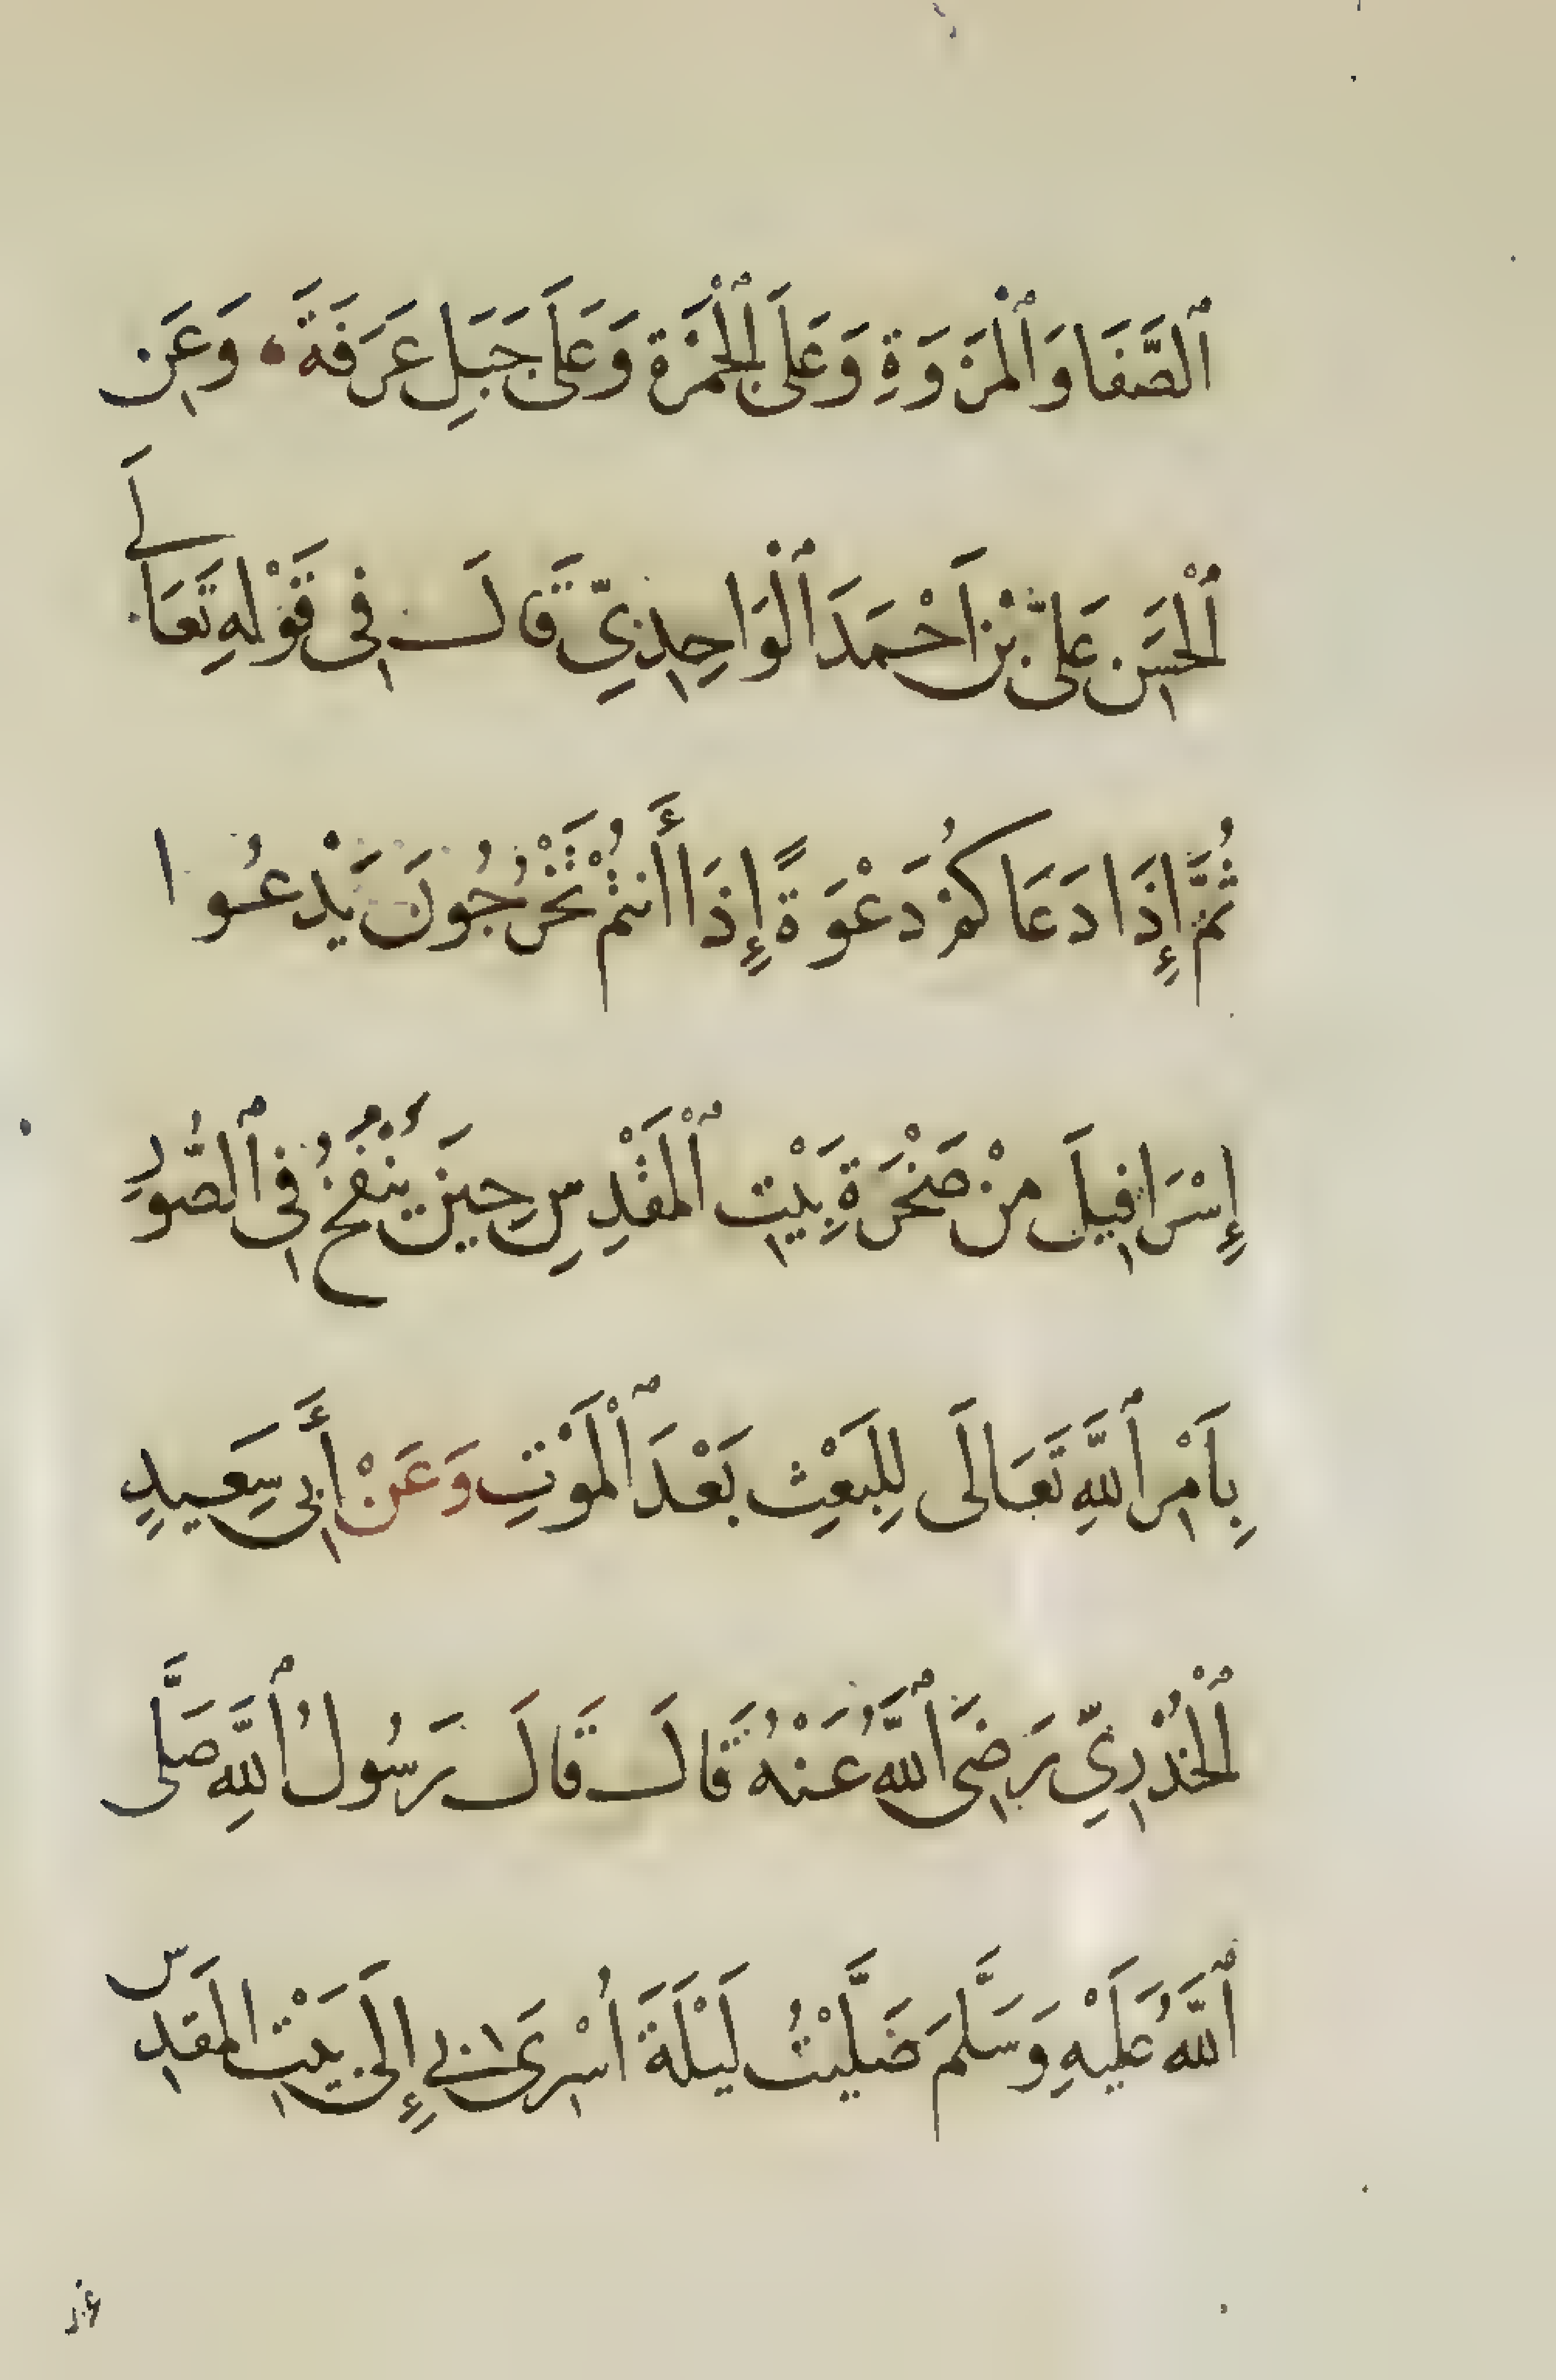 ٱلصَّفَا وَٱلْمَرْوَةِ وَعَلَى ٱلْجَمْرَةِ وَعَلَى جَبَلِ عَرَفَةَ وَعَنِ
ٱلْحَسَنِ عَلِيِّ بْنِ أَحْمَدَ ٱلْوَاحِدِيِّ قَالَ فِي قَوْلِهِ تَعَالَى
ثُمَّ إِذَا دَعَاكُمْ دَعْوَةً إِذَا أَنْتُمْ تَخْرُجُونَ يَدْعُوا
إِسْرَافِيلَ مِنْ صَخْرَةِ بَيْتِ ٱلْمَقْدِسِ حِينَ يُنْفَخُ فِي ٱلصُّورِ
بِأَمْرِ ٱللَّهِ تَعَالَى لِلْبَعْثِ بَعْدَ ٱلْمَوْتِ وَعَنْ أَبِي سَعِيدٍ
ٱلْخُدْرِيِّ رَضِيَ ٱللَّهُ عَنْهُ قَالَ قَالَ رَسُولُ ٱللَّهِ صَلَّى
ٱللَّهُ عَلَيْهِ وَسَلَّمَ صَلَّيْتُ لَيْلَةَ أُسْرِيَ بِي إِلَى بَيْتِ المَقْدِسِ